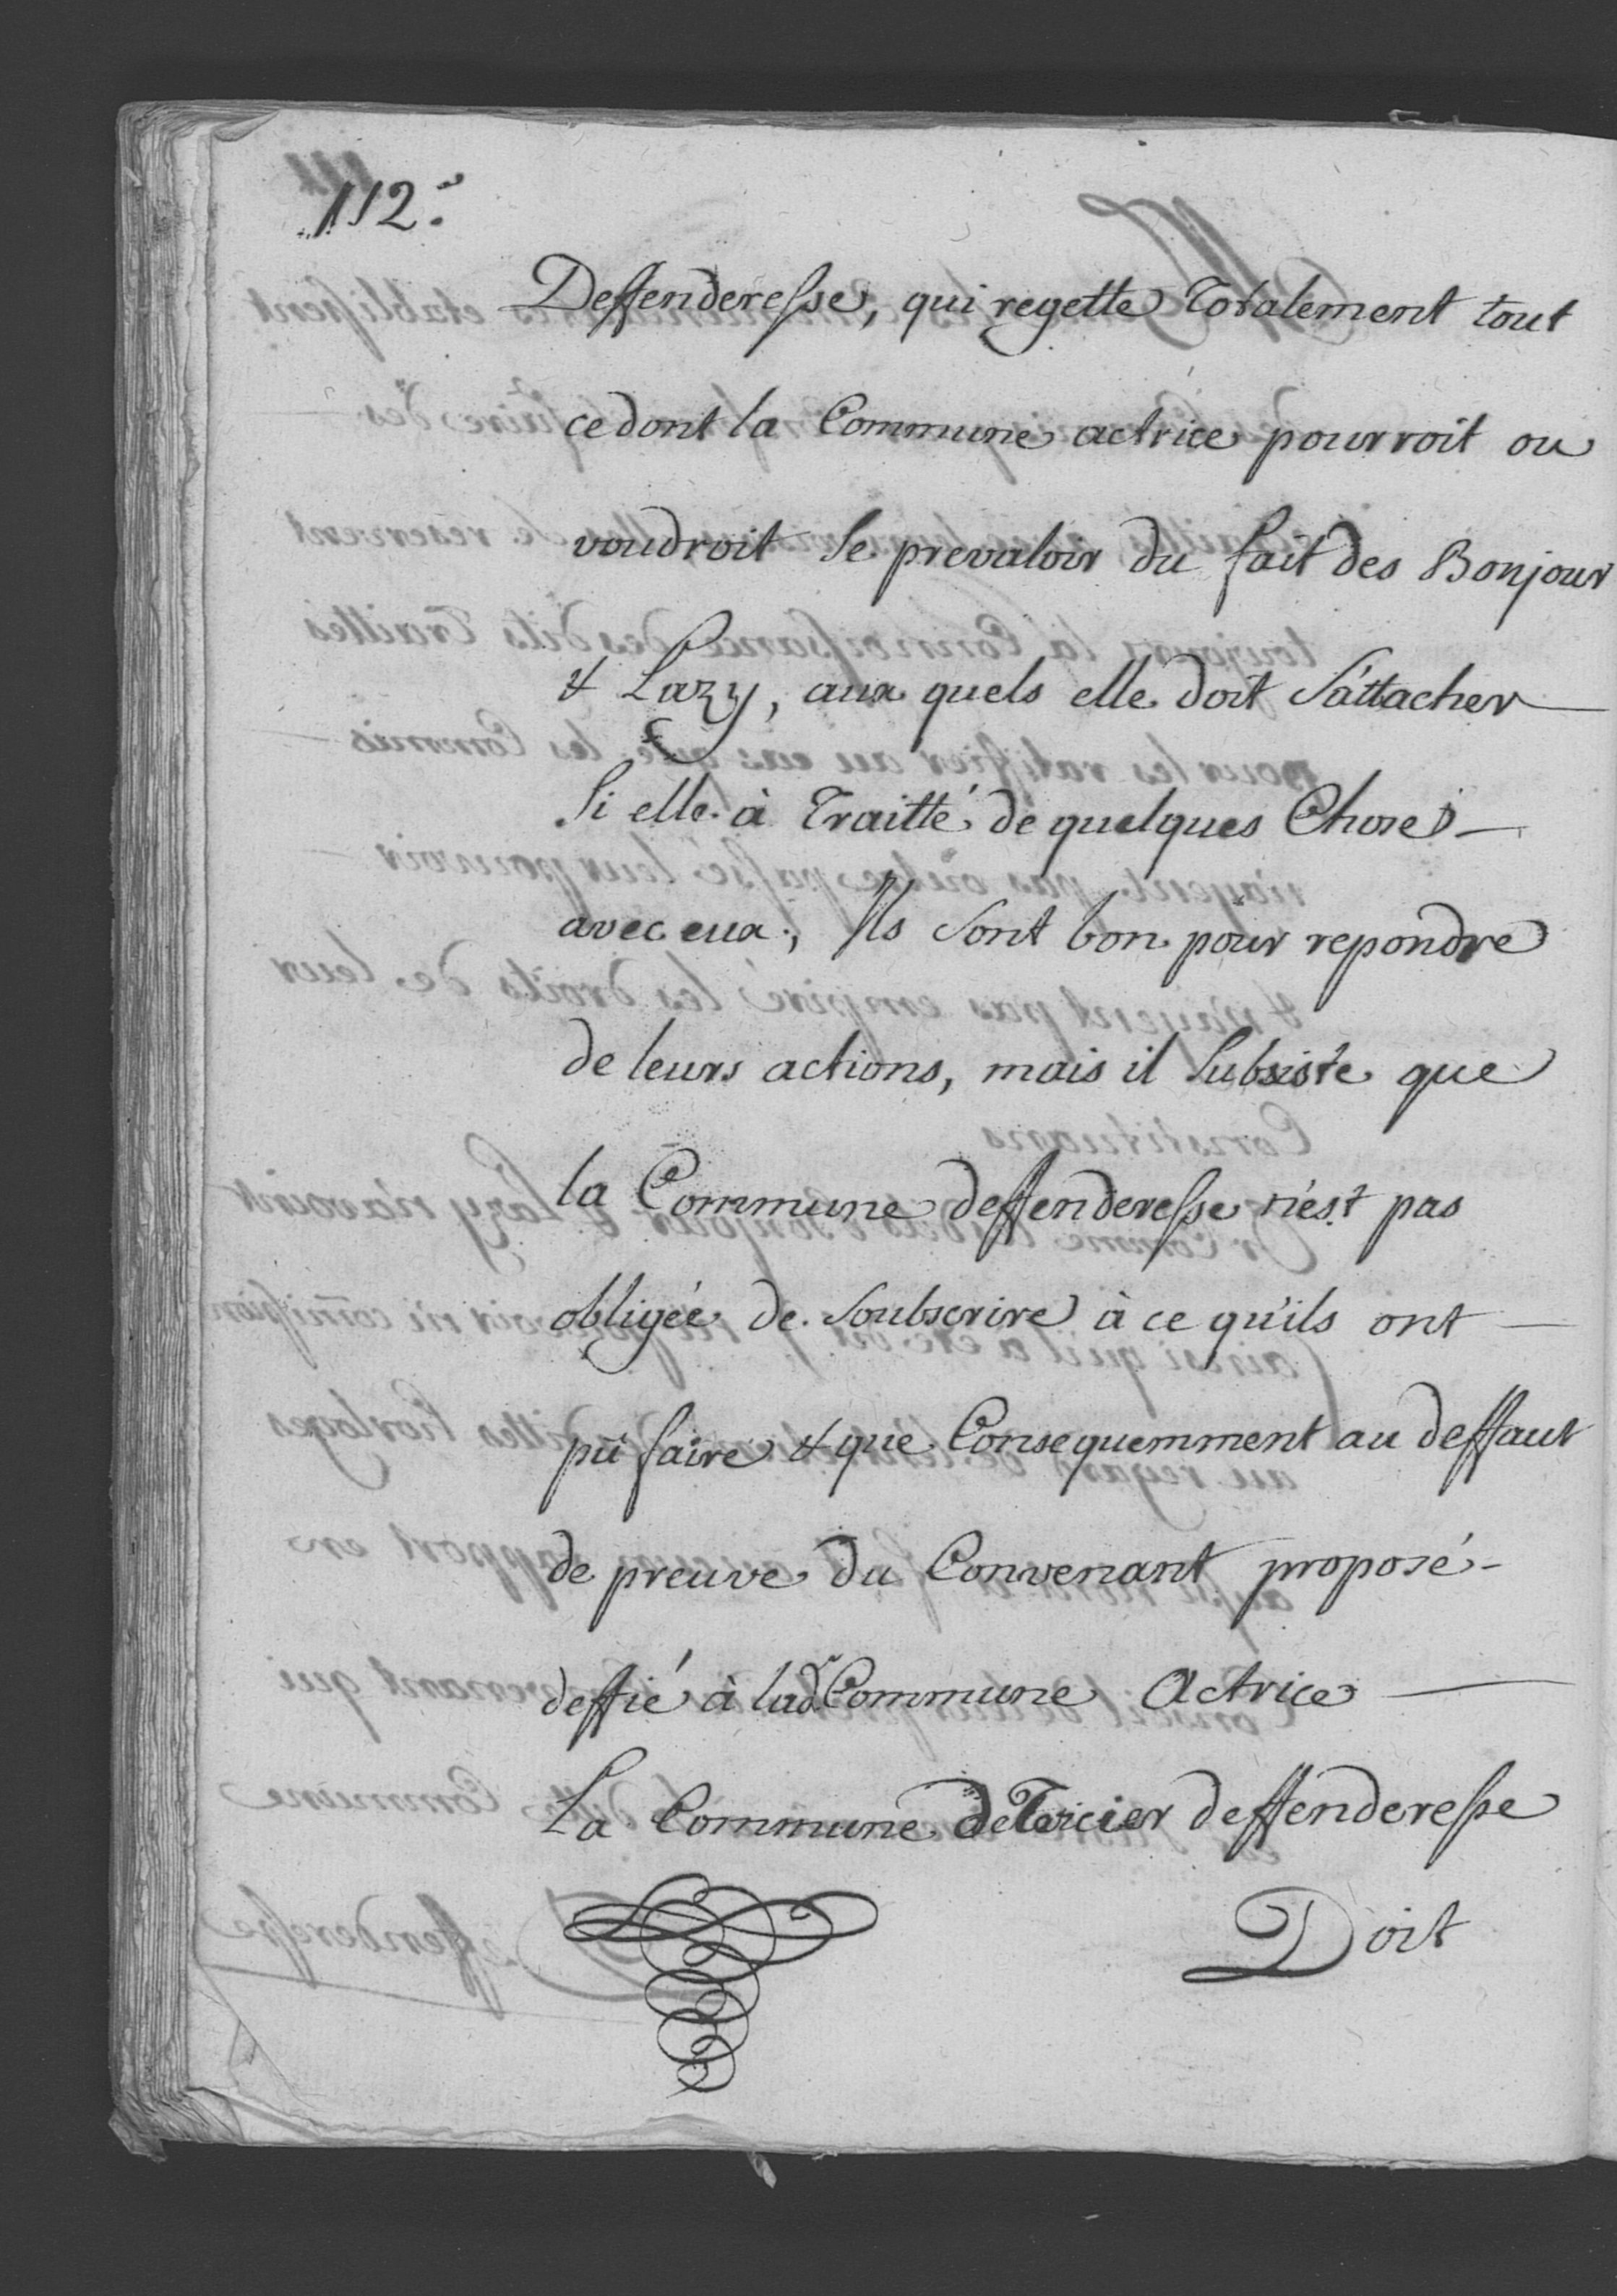 112.
Deffenderesse, qui regette Totalement tout
ce dont la Commune actrice pourroit ou
voudroit se prevaloir du fait des Bonjour
& Lazy, aux quels elle doit s'attacher
si elle à Traitté de quelques Chose
avec eux; Ils sont bon pour repondre
de leurs actions, mais il subsiste que
la Commune deffenderesse n'est pas
obligée de soubscrire à ce qu'ils ont
pû faire & que Consequemment au deffaut
de preuve du Convenant proposé
deffié à lad. Commune Actrice
La Commune de Tercier deffenderesse
Doit